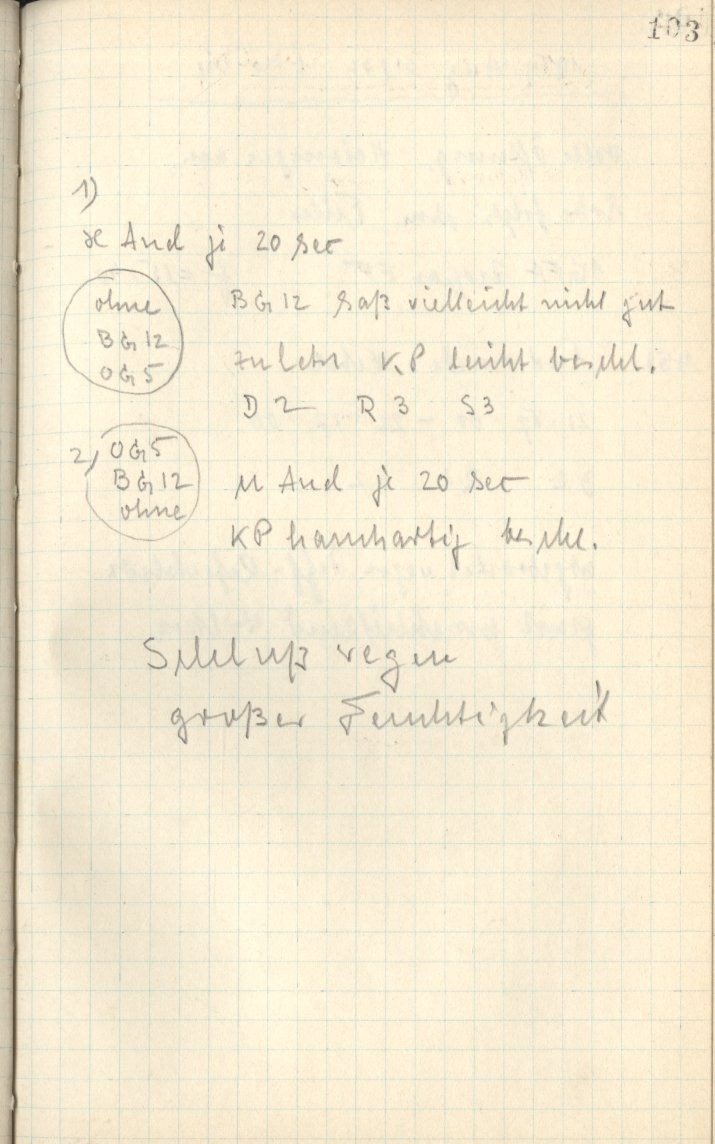 103
1)
α And je 20 sec
ohne
BG 12
OG 5
BG 12 saß vielleicht nicht gut
zuletzt KP leicht beschl.
D 2 R 3 S 3
2) OG 5
BG 12
ohne
μ And je 20 sec
KP hauchartig beschl.
Schluß wegen
großer Feuchtigkeit